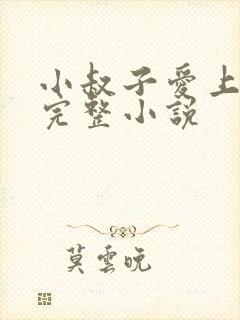 小叔子愛上
完整小說
莫雲晚